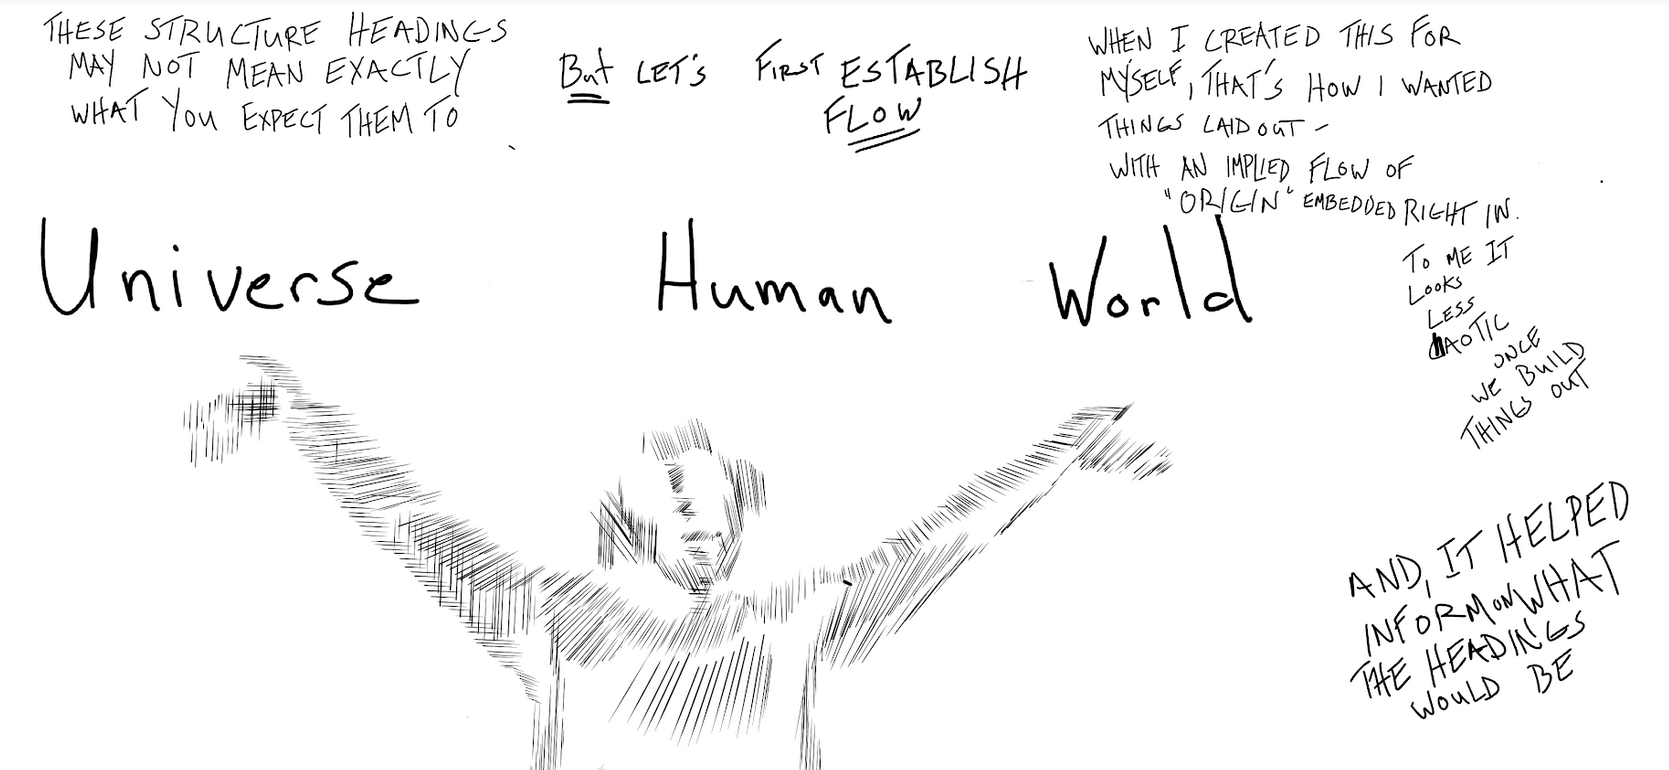 THESE STRUCTURE HEADINGS
MAY NOT MEAN EXACTLY
WHAT YOU EXPECT THEM TO
But LET'S FIRST ESTABLISH
FLOW
WHEN I CREATED THIS FOR
MYSELF, THAT'S HOW I WANTED
THINGS LAID OUT -
WITH AN IMPLIED FLOW OF
"ORIGIN" EMBEDDED RIGHT IN.
TO ME IT
LOOKS
LESS
CHAOTIC
ONCE
WE BUILD
THINGS OUT
Universe Human World
AND, IT HELPED
INFORM ON WHAT
THE HEADINGS
WOULD BE